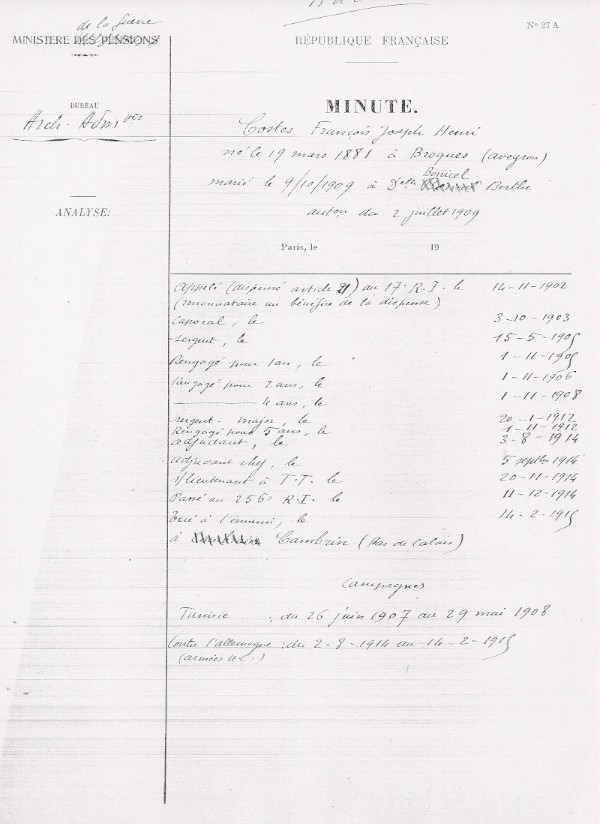 de la Guerre
MINISTERE DES PENSIONS
RÉPUBLIQUE FRANÇAISE
N° 27 A
BUREAU
Arch. Admves
ANALYSE:
MINUTE.
Costes François Joseph Henri
né le 19 mars 1881 à Broques (Aveyron)
marié le 9/10/1909 à Delle Bonicel Berthe
auton du 2 juillet 1909
Paris, le 19
Appelé (dispensé article 21) au 17e R.I. le 14-11-1902
(renonciataire au bénéfice de la dispense)
Caporal, le 3-10-1903
Sergent, le 15-5-1905
Rengagé pour 1 an, le 1-11-1905
Rengagé pour 2 ans, le 1-11-1906
——— 4 ans, le 1-11-1908
Sergent-major, le 20-1-1912
Rengagé pour 5 ans, le 1-11-1912
adjudant, le 3-8-1914
adjudant chef, le 5 septbre 1914
s/lieutenant à T.T. le 20-11-1914
Passé au 256e R.I. le 11-12-1914
Tué à l'ennemi, le 14-2-1915
à Cambrin (Pas de Calais)
Campagnes
Tunisie : du 26 juin 1907 au 29 mai 1908
Contre l'allemagne : du 2-8-1914 au 14-2-1915